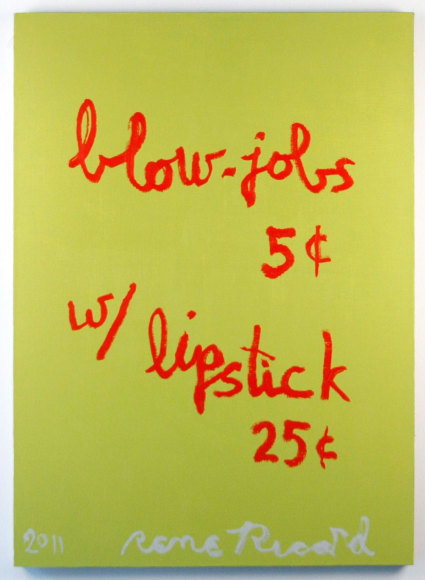 blow-jobs
5¢
w/ lipstick
25¢
2011 Rene Ricard